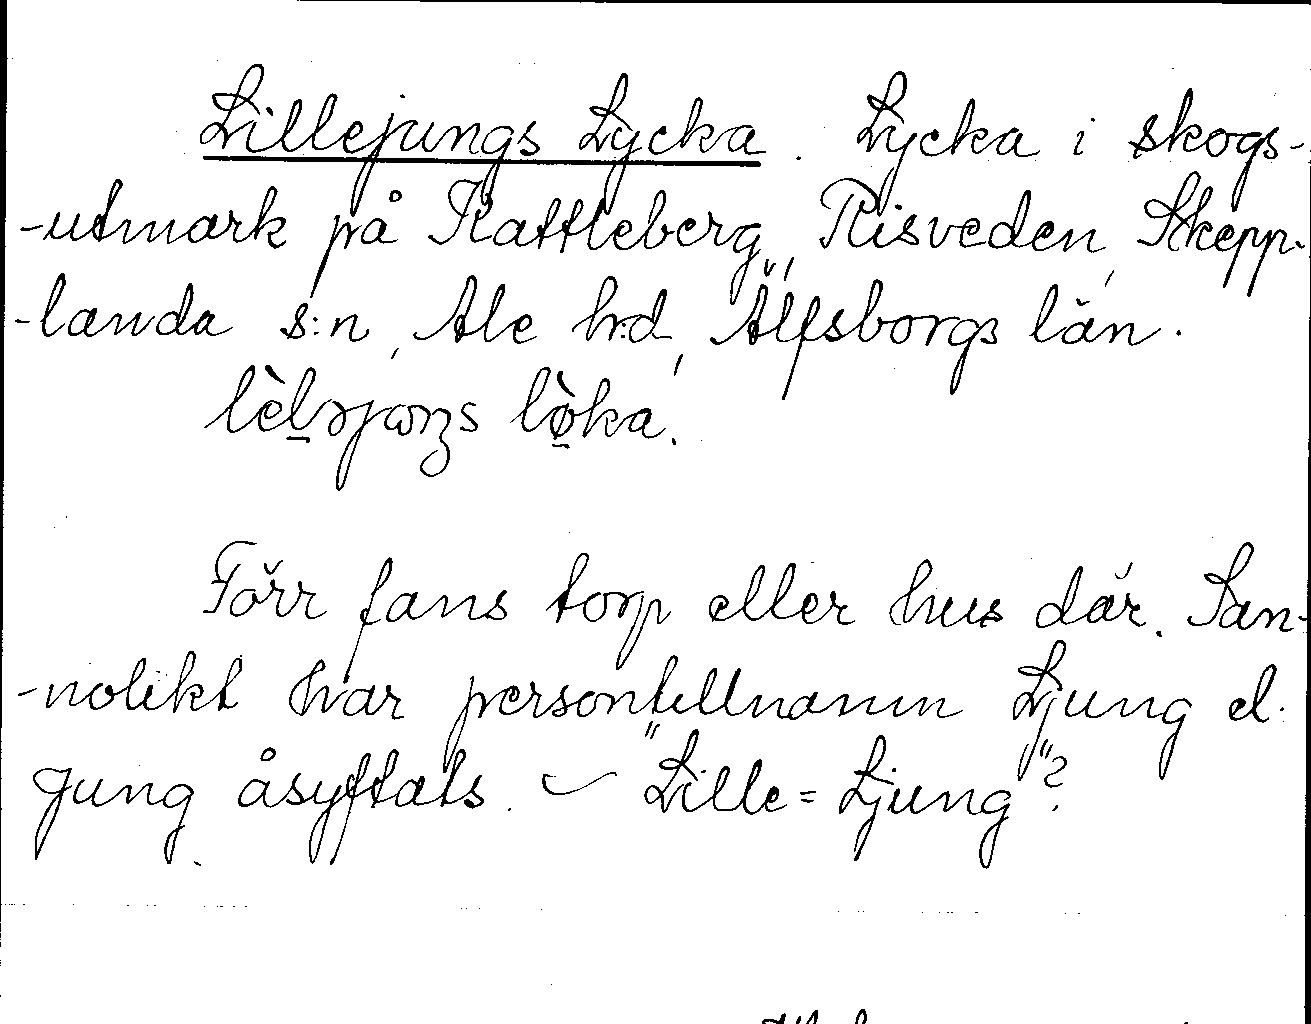 Lillejungs Lycka. Lycka i skogs-
-utmark på Kattleberg, Risveden, Skepp-
-landa s:n, Ale h:d, Älfsborgs län.
löka.
Förr fans torp eller hus där. San-
-nolikt har persontillnamn Ljung el.
Jung åsyftats. – "Lille=Ljung"?